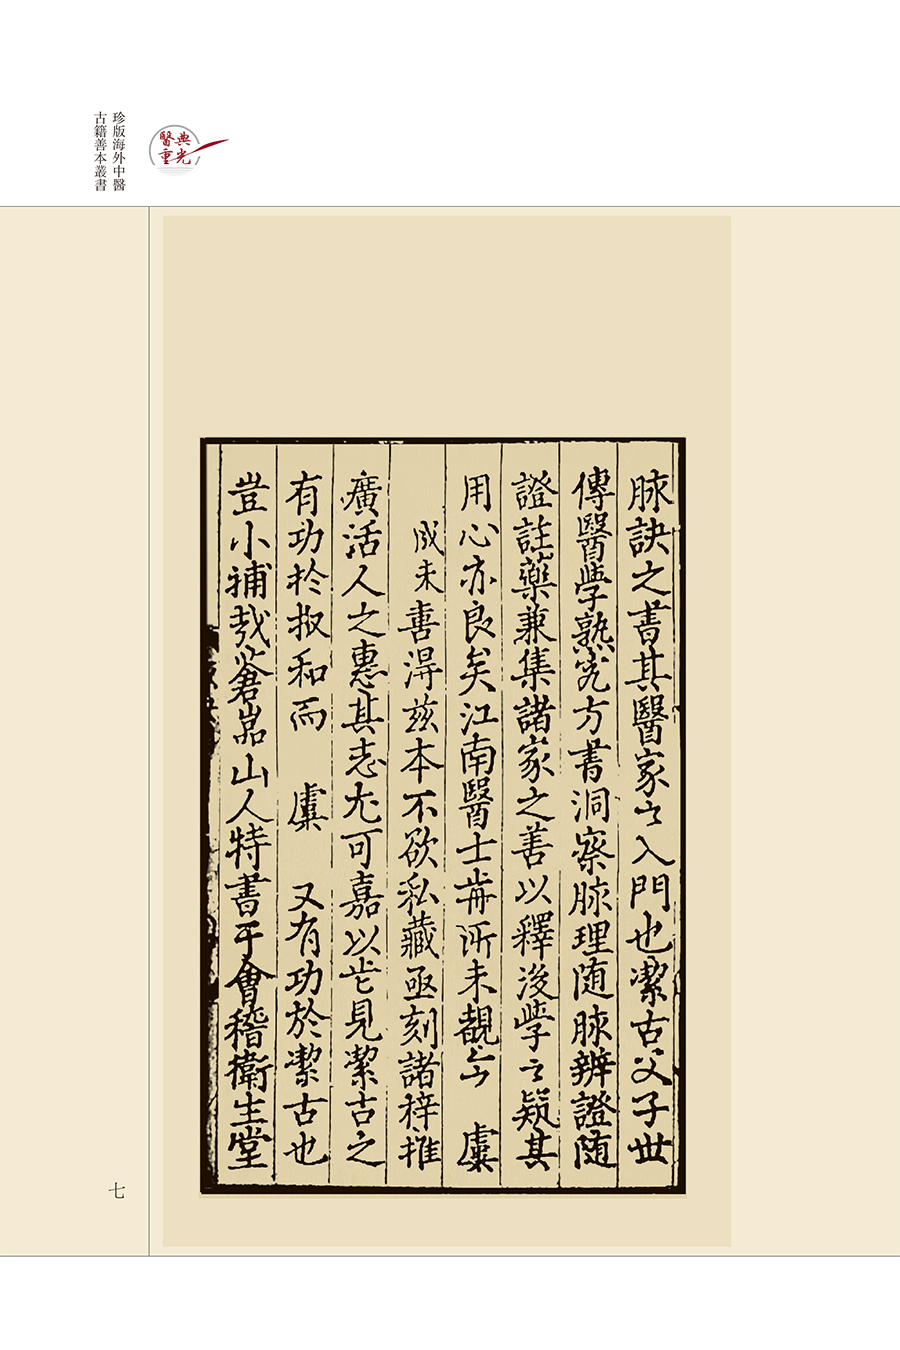 珍版海外中醫
古籍善本叢書
醫典
重光
脉訣之書其醫家之入門也潔古父子世
傳醫學熟究方書洞察脉理随脉辨證随
證註藥兼集諸家之善以釋後學之疑其
用心亦良矣江南醫士毎所未覩今 虞
成未書得兹本不欲私藏亟刻諸梓推
廣活人之惠其志尤可嘉以此見潔古之
有功於叔和而 虞 又有功於潔古也
豈小補哉蒼嵓山人特書于會稽衛生堂
七